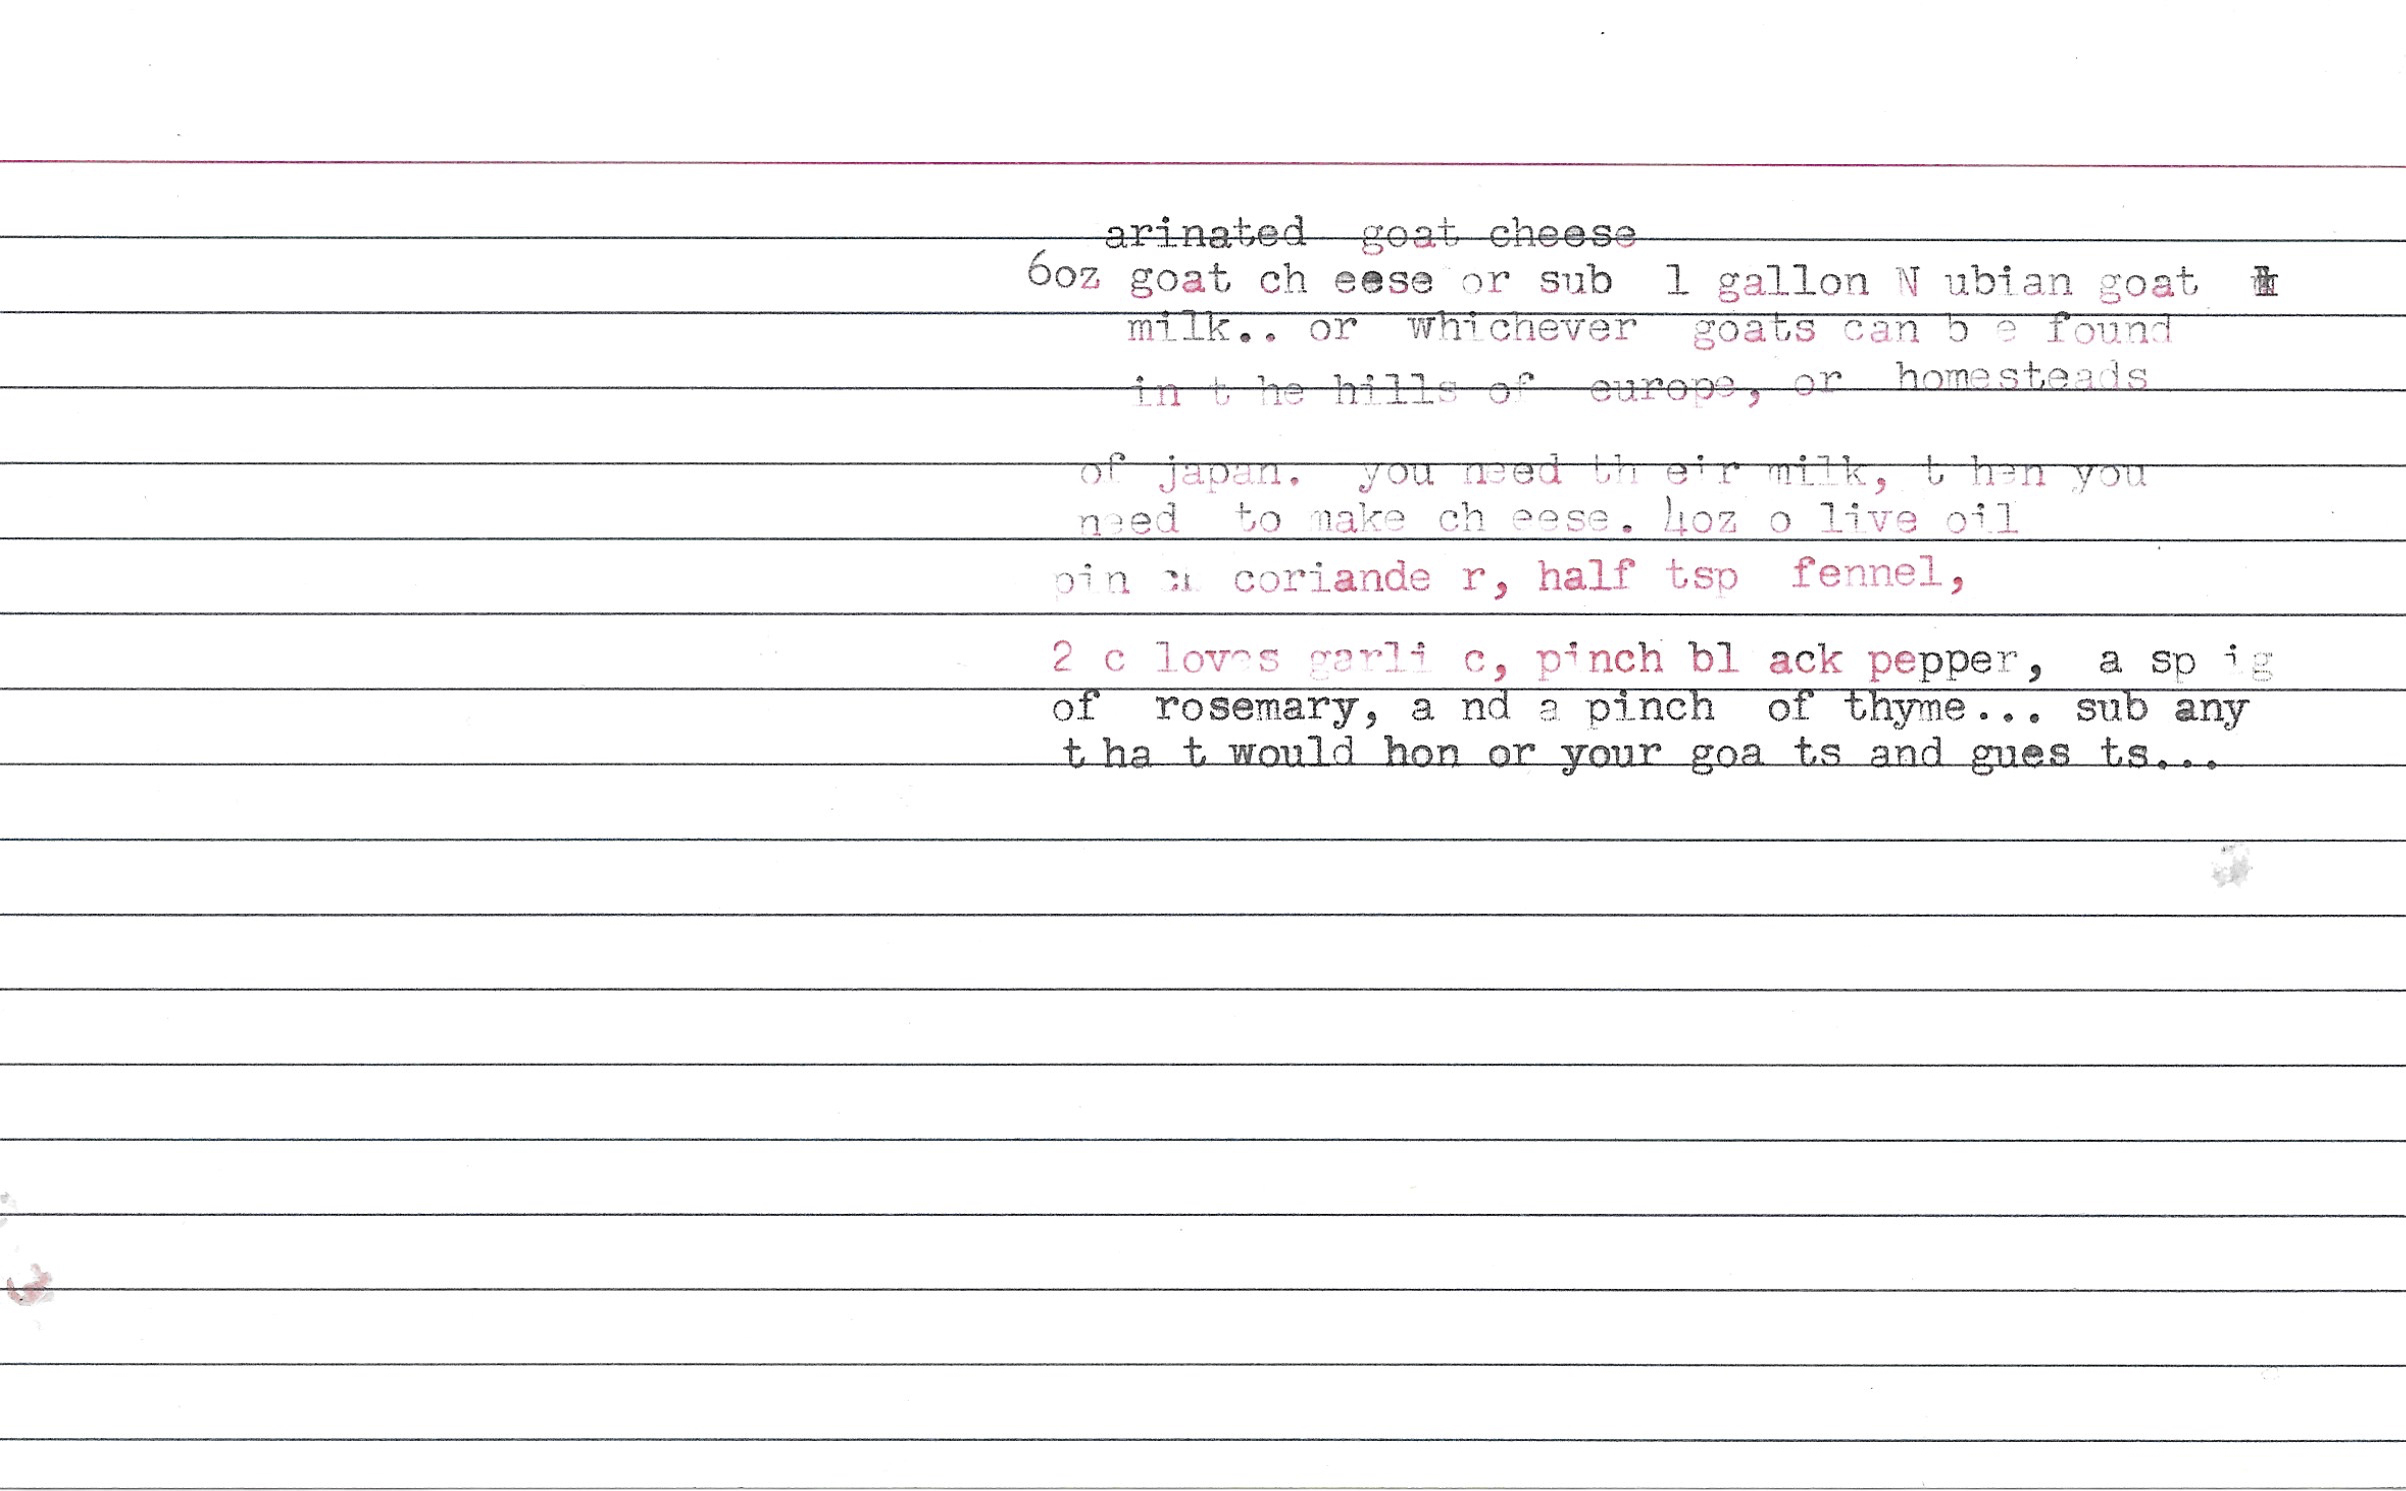 arinated goat cheese
6oz goat ch eese or sub 1 gallon N ubian goat
milk.. or whichever goats can b e found
in t he hills of europe, or homesteads
of japan. you need th eir milk, t hen you
need to make ch eese. 4oz o live oil
pin coriande r, half tsp fennel,
2 c loves garli c, pinch bl ack pepper, a sp ig
of rosemary, a nd a pinch of thyme... sub any
t ha t would hon or your goa ts and gues ts...